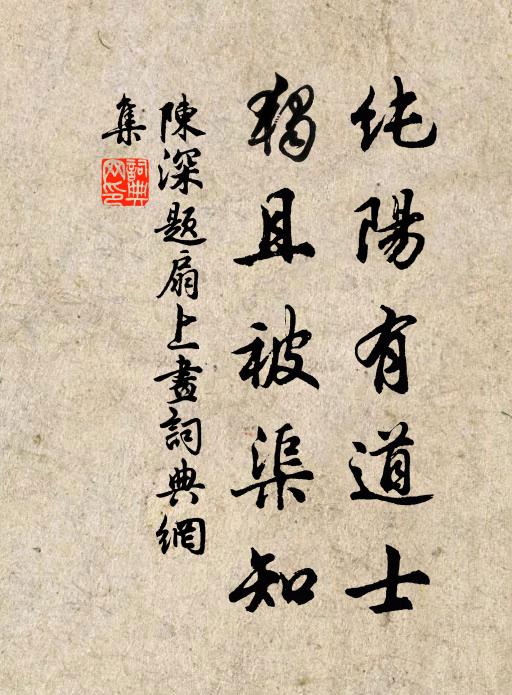 纯陽有道士
獨且被渠知
陳深题扇上畫詞典網
集
詞典網印